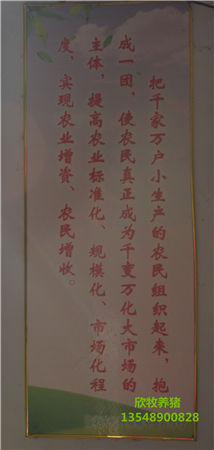 把千家万户小生产的农民组织起来，抱
成一团，使农民真正成为千变万化大市场的
主体，提高农业标准化、规模化、市场化程
度，实现农业增资、农民增收。
欣牧养猪
13548900828